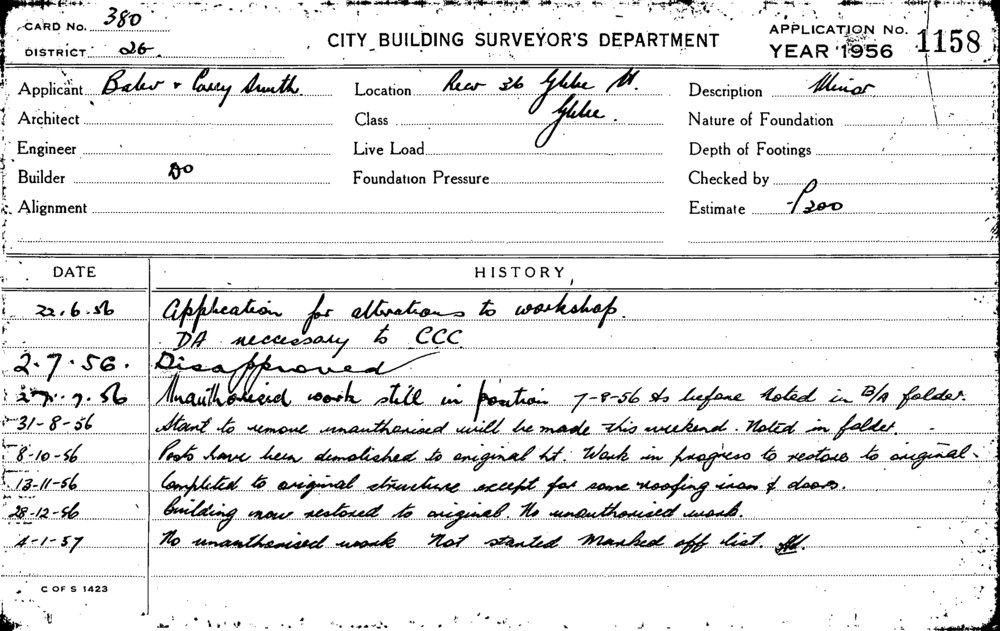 CARD No. 380
DISTRICT 26
CITY BUILDING SURVEYOR'S DEPARTMENT
APPLICATION No. 1158
YEAR 1956
Applicant Baker & Smith
Location Rear 36 Glebe St.
Description Minor
Architect
Class Glebe.
Nature of Foundation
Engineer
Live Load
Depth of Footings
Builder Do
Foundation Pressure
Checked by
Alignment
Estimate £300
DATE HISTORY
22.6.56 Application for alterations to workshop.
DA neccessary to CCC
2.7.56. Disapproved
27.7.56 Unauthorised work still in position 7-8-56 As before Noted in B/A folder.
31-8-56 Start to remove unauthorised will be made this weekend. Noted in folder
8-10-56 Posts have been demolished to original ht. Work in progress to restore to original.
13-11-56 Completed to original structure except for some roofing iron & doors.
28-12-56 Building now restored to original. No unauthorised work.
4-1-57 No unauthorised work Not started Marked off list.
C OF S 1423